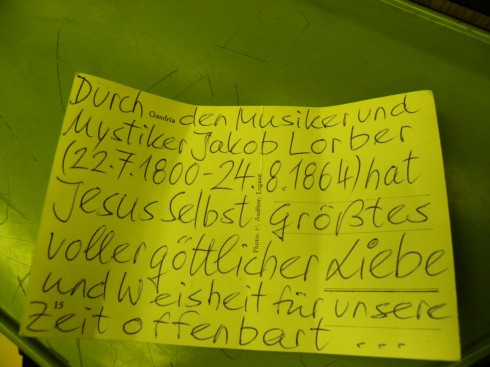 Durch den Musiker und
Mystiker Jakob Lorber
(22.7.1800-24.8.1864) hat
Jesus Selbst größtes
voller göttlicher Liebe
und Weisheit für unsere
Zeit offenbart ...
Gandria
15